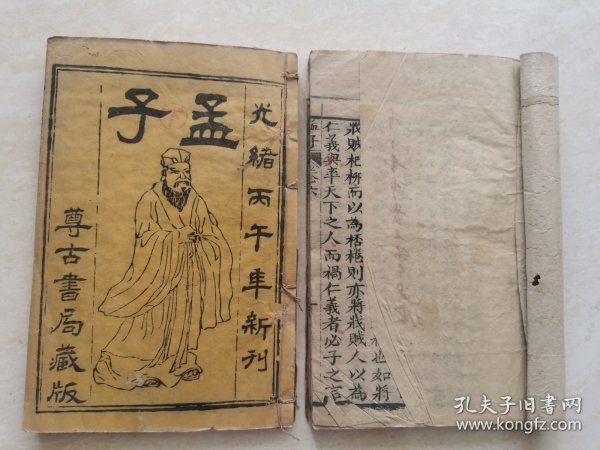 光緒丙午年新刊
孟子
尊古書局藏版
也如將
戕賊杞柳而以為桮棬則亦將戕賊人以為
仁義與率天下之人而禍仁義者必子之言
孟子
六
孔夫子旧书网
www.kongfz.com